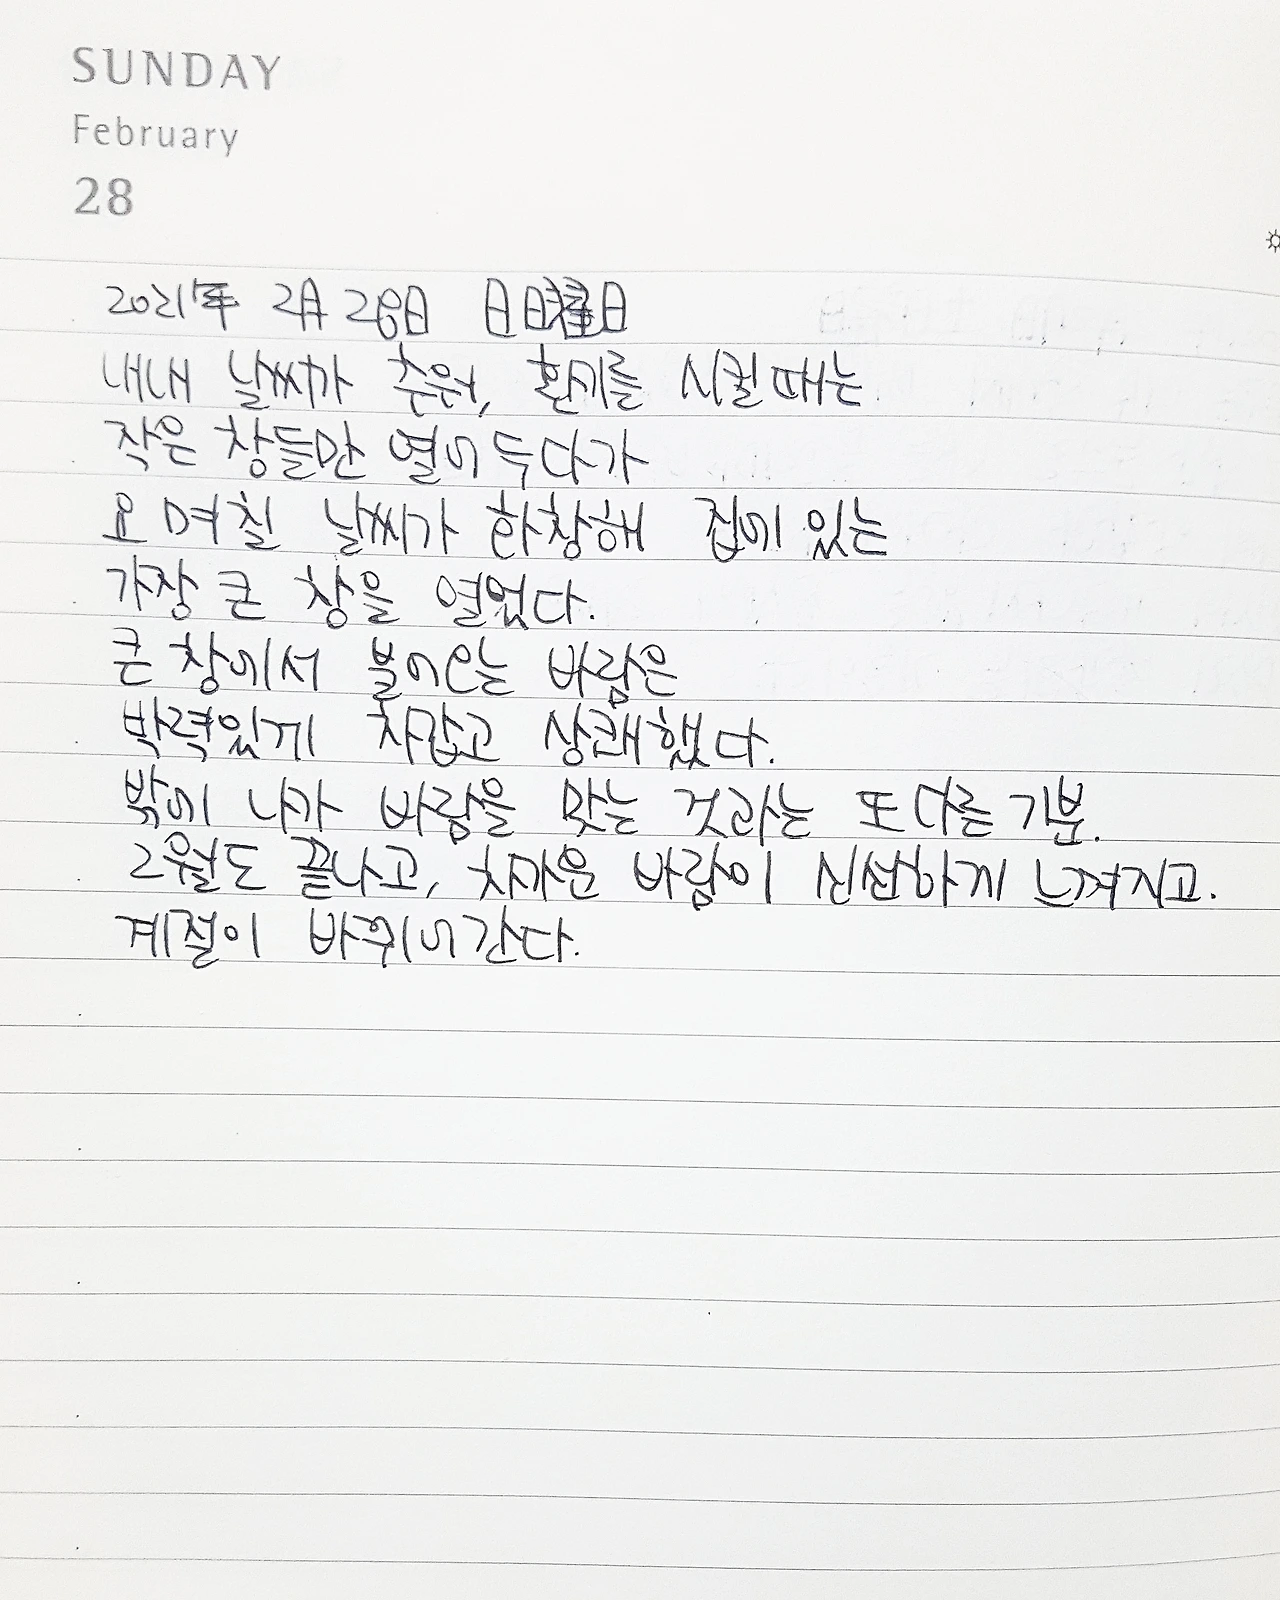 SUNDAY
February
28
2021年 2月 28日 日日曜日
내내 날씨가 추워, 환기를 시킬때는
작은 창들만 열어두다가
요 며칠 날씨가 화창해 집에 있는
가장 큰 창을 열었다.
큰 창에서 불어오는 바람은
박력있게 차갑고 상쾌했다.
밖에 나가 바람을 맞는 것과는 또다른 기분.
2월도 끝나고, 차가운 바람이 신선하게 느껴지고.
계절이 바뀌어간다.